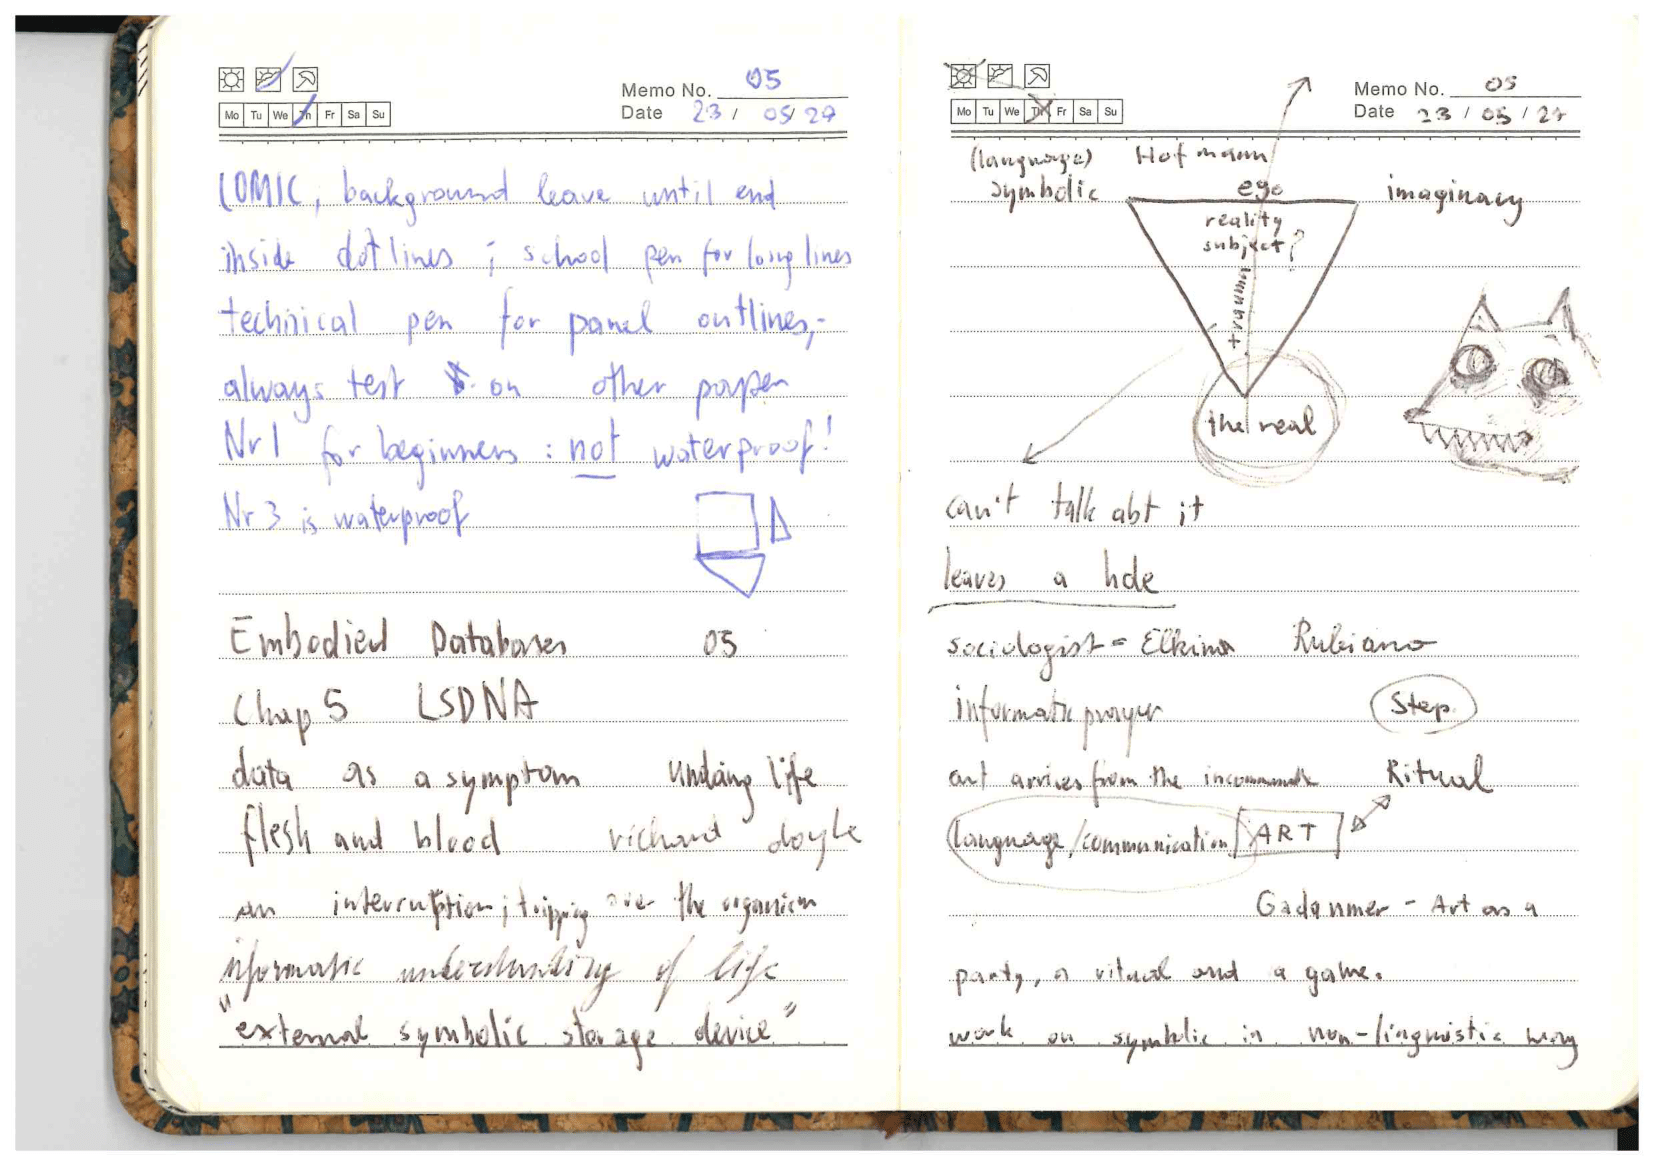 Memo No. 05
Mo Tu We Th Fr Sa Su
Date 23 / 05 / 24
COMIC, background leave until end
inside dot lines ; school pen for long lines
technical pen for panel outlines,-
always test on other paper
Nr 1 for beginners : not waterproof!
Nr 3 is waterproof
Embodied Databases 05
Chap 5 LSDNA
data as a symptom life
flesh and blood richard doyle
an interruption; tripping over the organism
informatic understanding of life
"external symbolic storage device"
Memo No. 05
Mo Tu We Th Fr Sa Su
Date 23 / 05 / 24
(language) Hofmann
symbolic ego imaginacy
reality
subject?
trauma
the real
can't talk abt it
leaves a hole
sociologist = Elkina Rubiano
informatic prayer Step
art arrives from the Ritual
language/communication ART
Gadammer - Art as a
party, a ritual and a game.
work on symbolic in non-lingnistic way